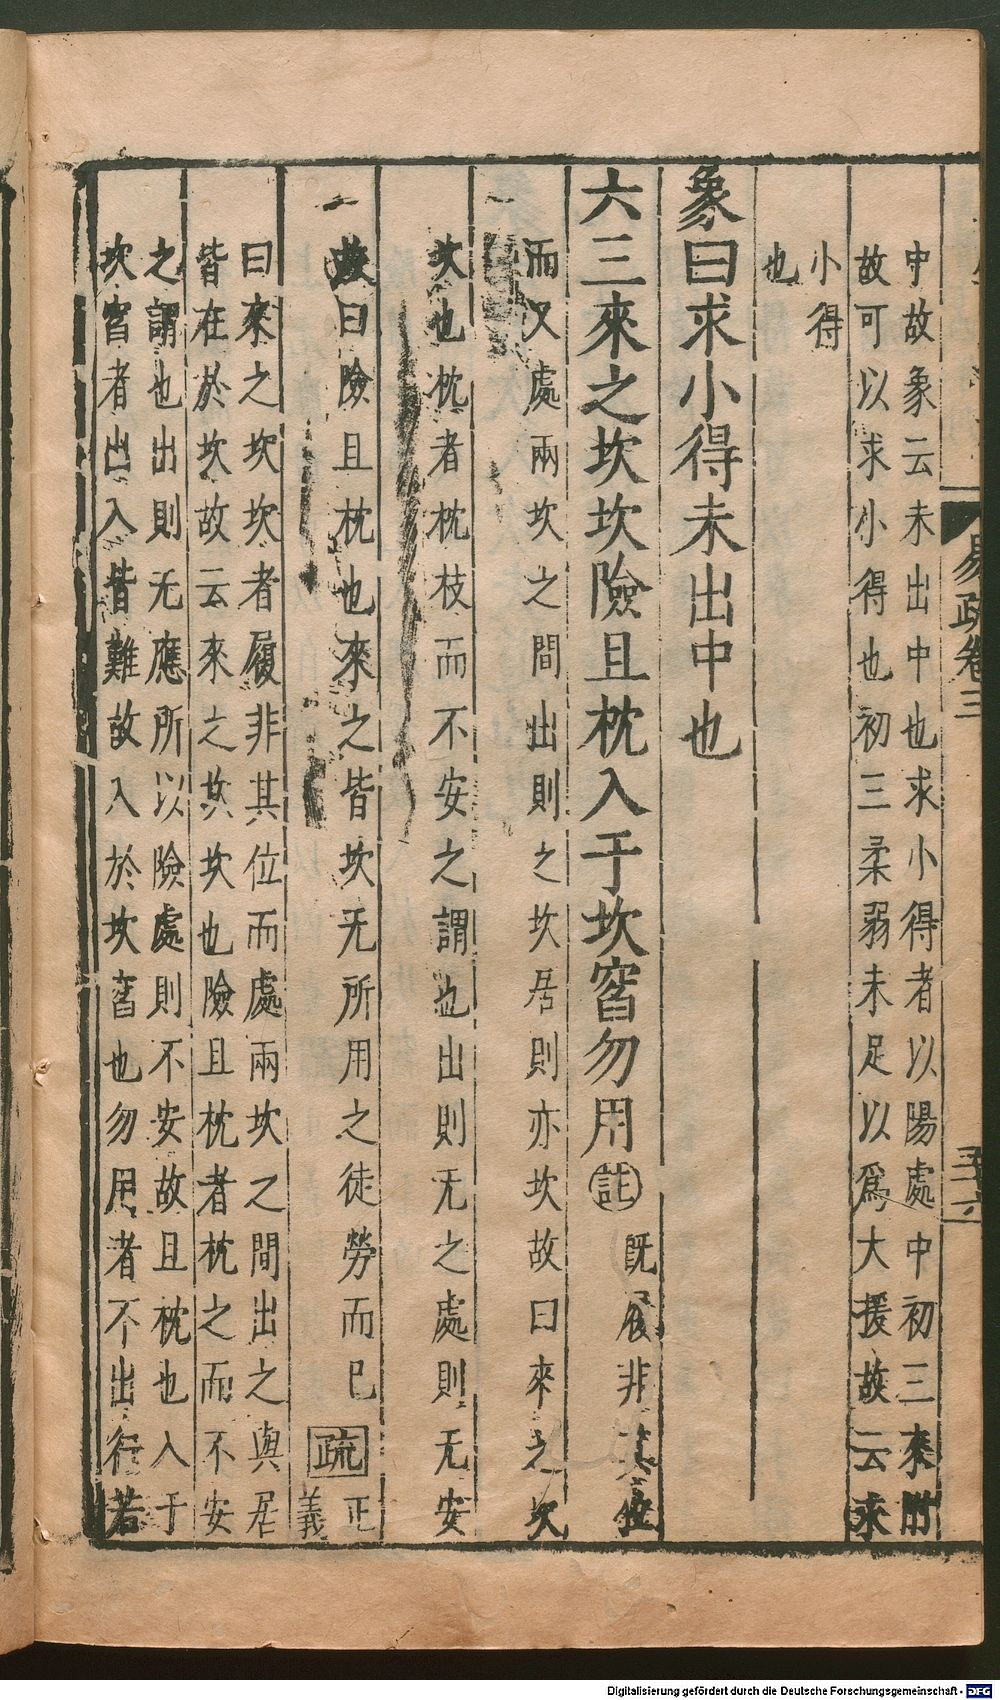 易疏卷三
中故象云未出中也求小得者以陽處中初三來附
故可以求小得也初三柔弱未足以爲大援故云求
小得
也
象曰求小得未出中也
六三來之坎坎險且枕入于坎窞勿用註旣履非其位
而又處兩坎之間出則之坎居則亦坎故曰來之坎
坎也枕者枕枝而不安之謂也出則无之處則无安
故曰險且枕也來之皆坎无所用之徒勞而已疏正
義
曰來之坎坎者履非其位而處兩坎之間出之與居
皆在於坎故云來之坎坎也險且枕者枕之而不安
之謂也出則无應所以險處則不安故且枕也入于
坎窞者出入皆難故入於坎窞也勿用者不出行若
Digitalisierung gefördert durch die Deutsche Forschungsgemeinschaft - DFG